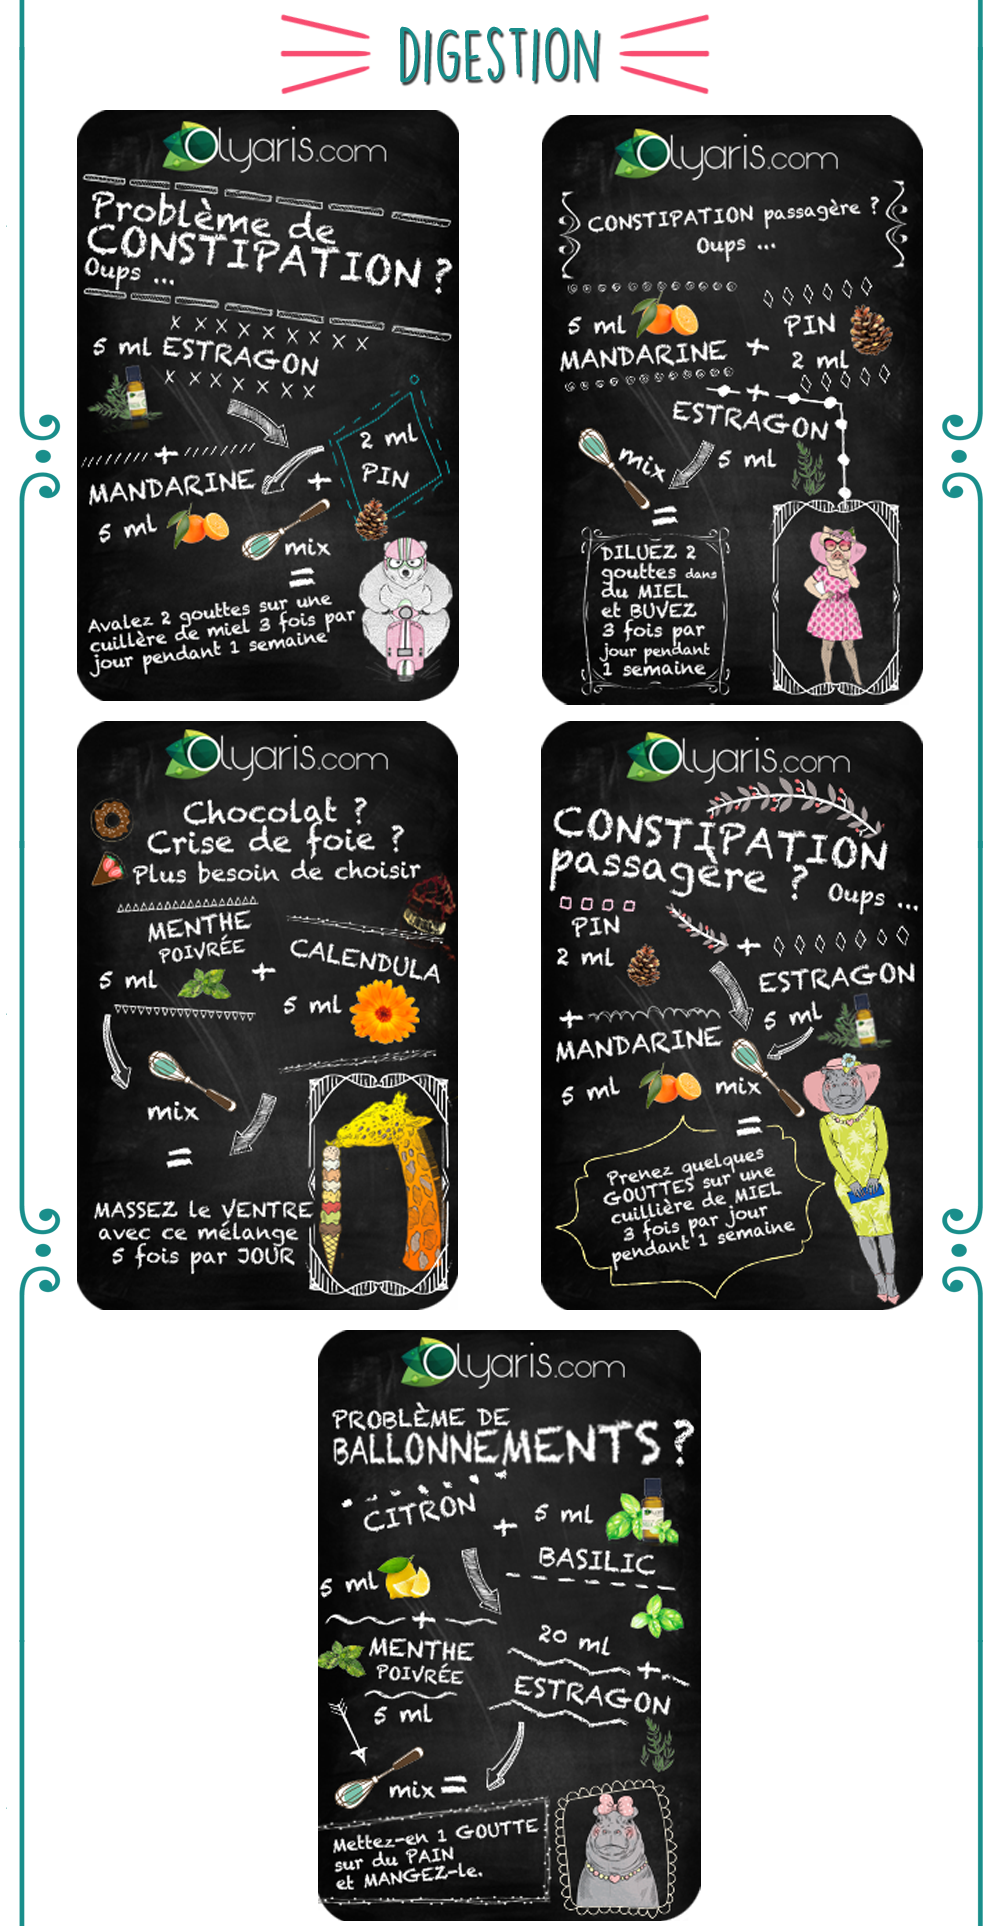 DIGESTION
Olyaris.com
Problème de
CONSTIPATION ?
Oups ...
5 ml ESTRAGON
+
MANDARINE
5 ml
+
2 ml
PIN
mix
=
Avalez 2 gouttes sur une
cuillère de miel 3 fois par
jour pendant 1 semaine
Olyaris.com
CONSTIPATION passagère ?
Oups ...
5 ml
MANDARINE
+
PIN
2 ml
+
ESTRAGON
5 ml
mix
=
DILUEZ 2
gouttes dans
du MIEL
et BUVEZ
3 fois par
jour pendant
1 semaine
Olyaris.com
Chocolat ?
Crise de foie ?
Plus besoin de choisir
MENTHE
POIVRÉE
5 ml
+
CALENDULA
5 ml
mix
=
MASSEZ le VENTRE
avec ce mélange
5 fois par JOUR
Olyaris.com
CONSTIPATION
passagère ?
Oups ...
PIN
2 ml
+
ESTRAGON
5 ml
+
MANDARINE
5 ml
mix
=
Prenez quelques
GOUTTES sur une
cuillière de MIEL
3 fois par jour
pendant 1 semaine
Olyaris.com
PROBLÈME DE
BALLONNEMENTS ?
CITRON
5 ml
+
5 ml
BASILIC
+
MENTHE
POIVRÉE
5 ml
20 ml
+
ESTRAGON
mix =
Mettez-en 1 GOUTTE
sur du PAIN
et MANGEZ-le.